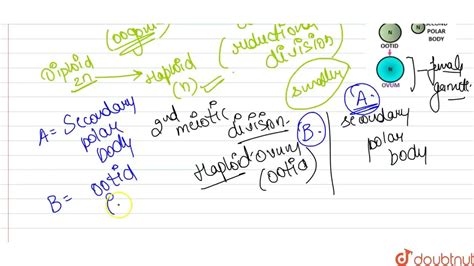 (oogon
(reductional
division)
Diploid
2n
Haploid
(n)
smaller
N
N
SECOND
POLAR
BODY
OOTID
OVUM
female
gamete
A = Secondary
polar
body
B = ootid
(
2nd meiotic
division
B.
Haploid ovum
(ootid)
A.
secondary
polar
body
doubtnut